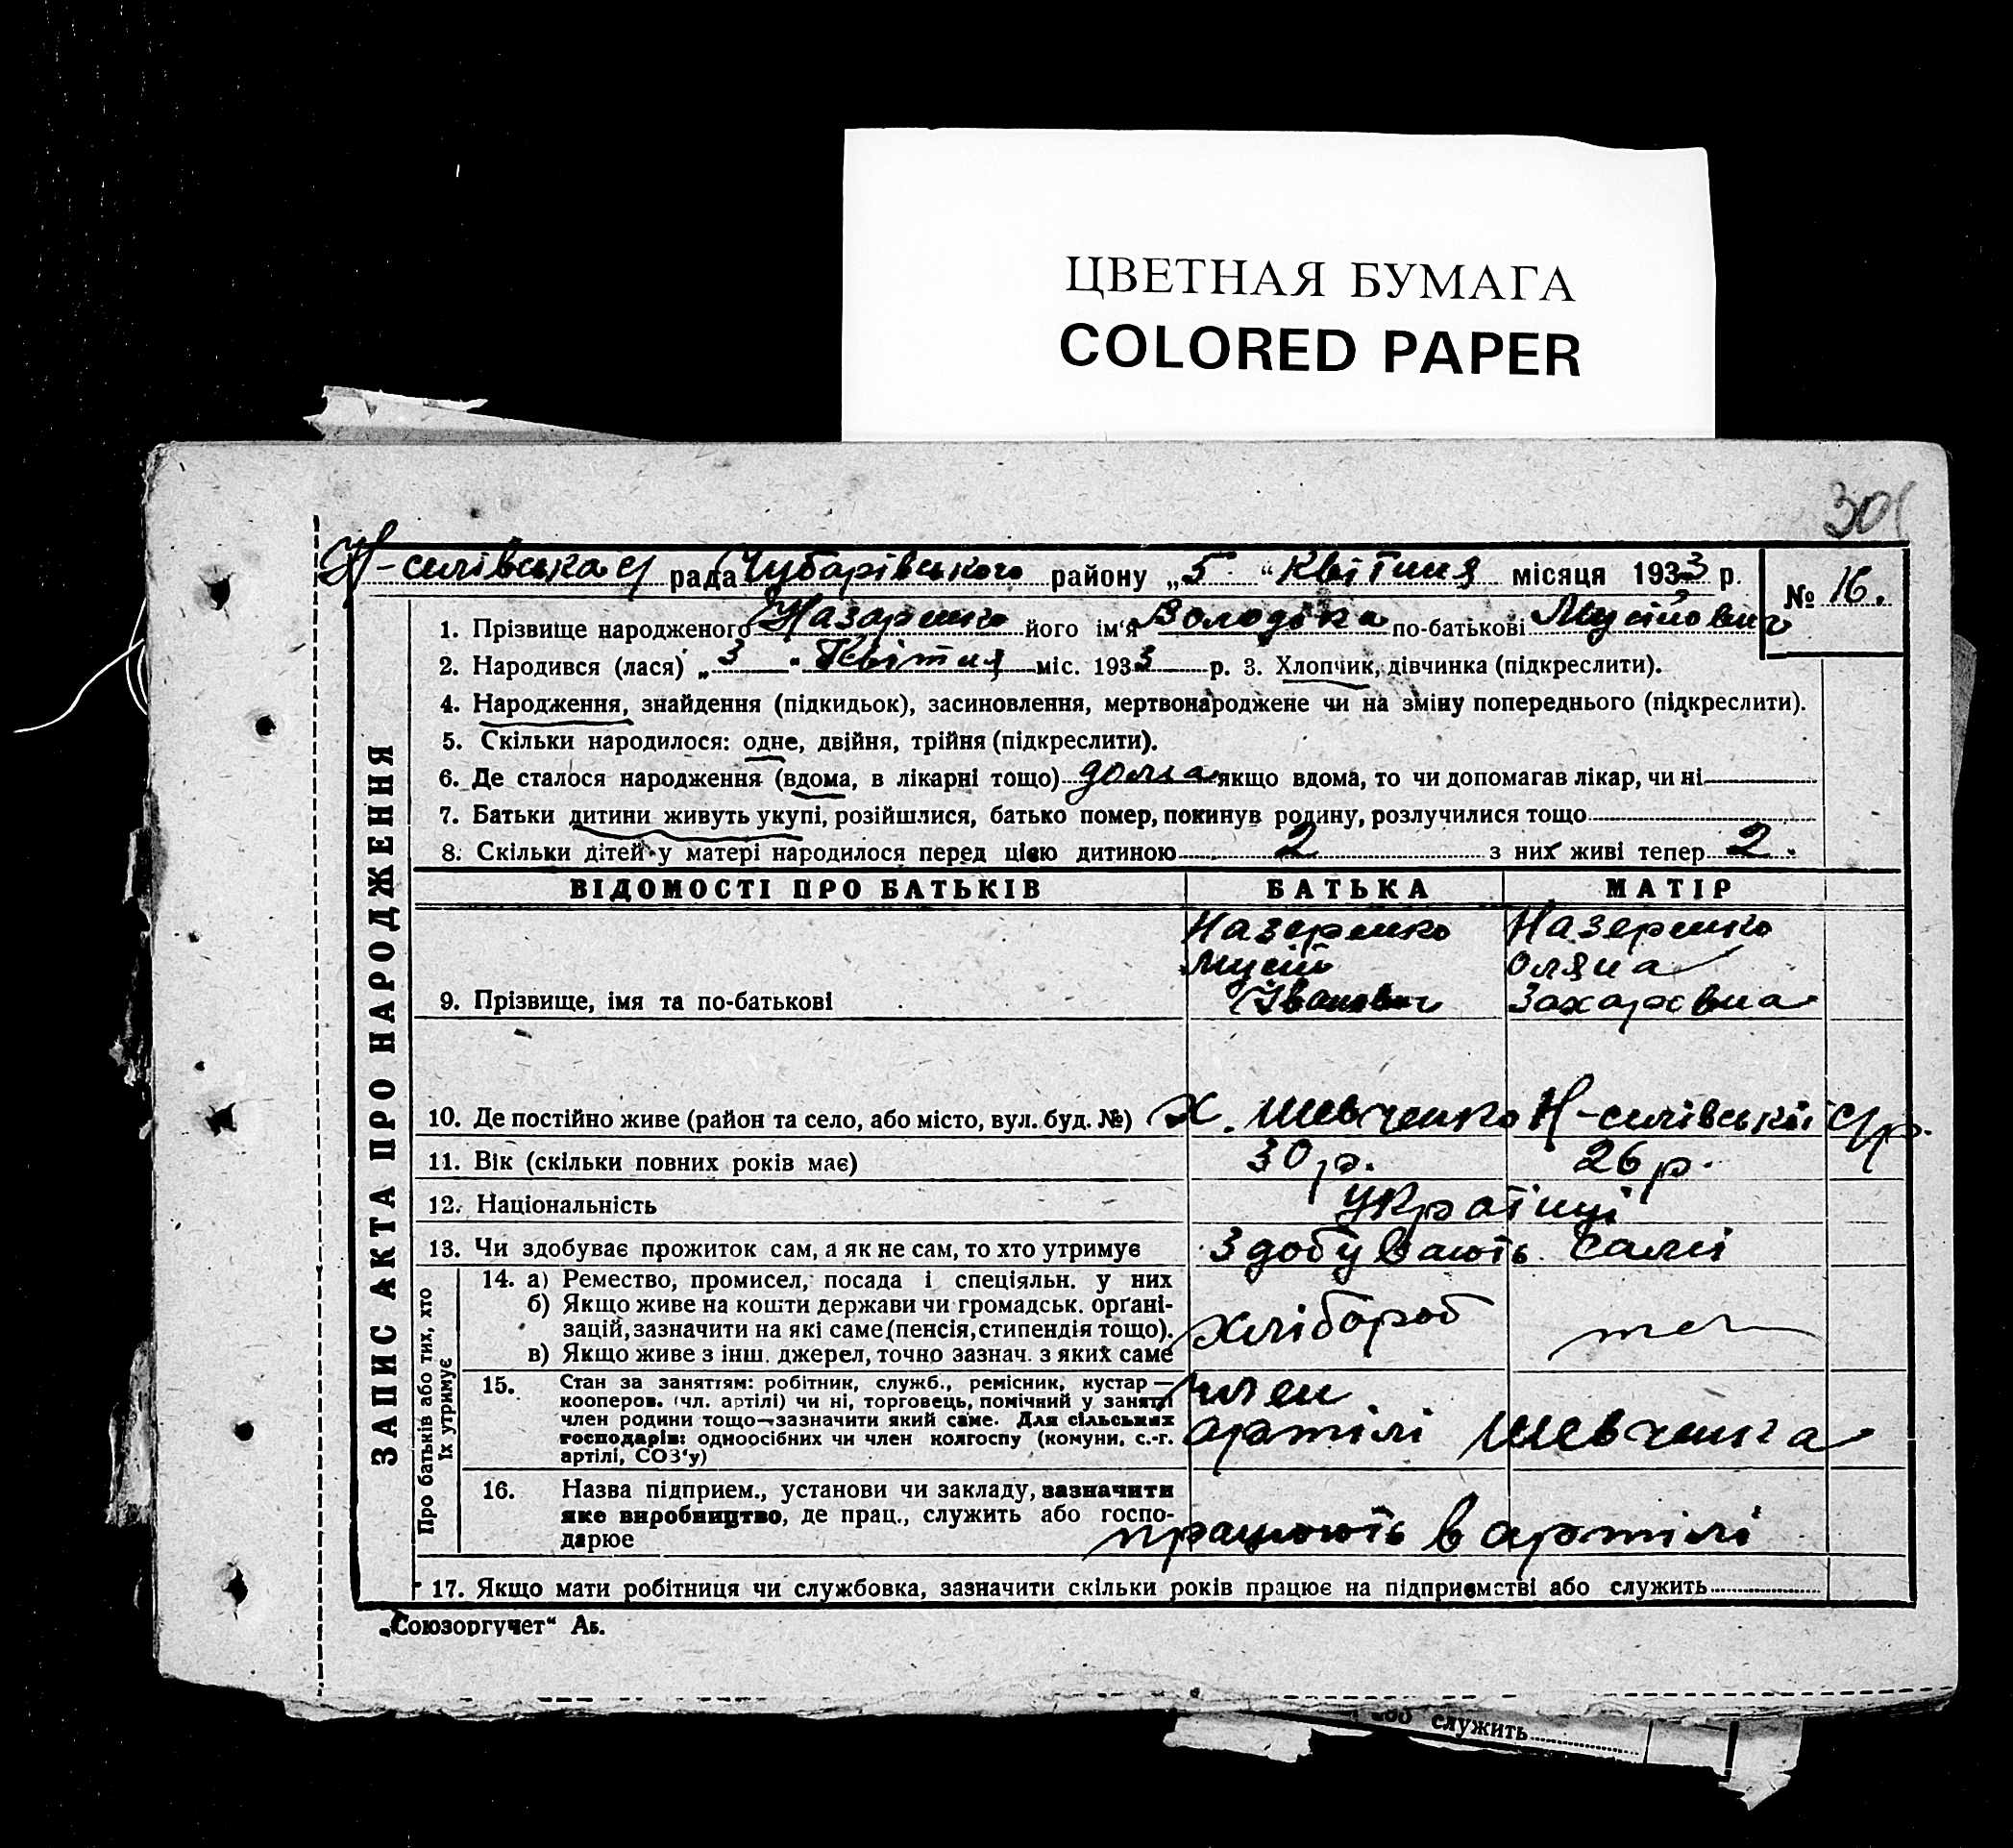 ЦВЕТНАЯ БУМАГА
COLORED PAPER
30
Н-силівська с/ рада Чубарівського району „5“ Квітня місяця 1933 р. № 16.
1. Прізвище народженого Назаренко його ім'я Володька по-батькові Мусійович
2. Народився (лася) „3“ Квітня міс. 1933 р. 3. Хлопчик, дівчинка (підкреслити).
4. Народження, знайдення (підкидьок), засиновлення, мертвонароджене чи на зміну попереднього (підкреслити).
5. Скільки народилося: одне, двійня, трійня (підкреслити).
6. Де сталося народження (вдома, в лікарні тощо) дома якщо вдома, то чи допомагав лікар, чи ні
7. Батьки дитини живуть укупі, розійшлися, батько помер, покинув родину, розлучилися тощо
8. Скільки дітей у матері народилося перед цією дитиною 2 з них живі тепер 2.
ЗАПИС АКТА ПРО НАРОДЖЕННЯ
ВІДОМОСТІ ПРО БАТЬКІВ БАТЬКА МАТІР
Назеренко Назеренко
Мусій Оляна
9. Прізвище, імя та по-батькові Іванович Захаровна
10. Де постійно живе (район та село, або місто, вул. буд. №) Х. Шевченко Н-силівській с/р.
11. Вік (скільки повних років має) 30 р. 26 р.
12. Національність Українці
13. Чи здобуває прожиток сам, а як не сам, то хто утримує Здобувають самі
Про батьків або тих, хто
їх утримує
14. а) Ремество, промисел, посада і спеціяльн. у них
б) Якщо живе на кошти держави чи громадськ. орґані-
зацій, зазначити на які саме (пенсія, стипендія тощо). хлібороб
в) Якщо живе з інш. джерел, точно зазнач. з яких саме
15. Стан за заняттям: робітник, служб., ремісник, кустар — член
кооперов. (чл. артілі) чи ні, торговець, помічний у занятті
член родини тощо—зазначити який саме. Для сільських
господарів: одноосібних чи член колгоспу (комуни, с.-г. артілі Шевченка
артілі, СОЗ'у)
16. Назва підприєм., установи чи закладу, зазначити
яке виробництво, де прац., служить або госпо-
дарює працюють в артілі
17. Якщо мати робітниця чи службовка, зазначити скільки років працює на підприємстві або служить
„Союзоргучет“ Аб.
служить